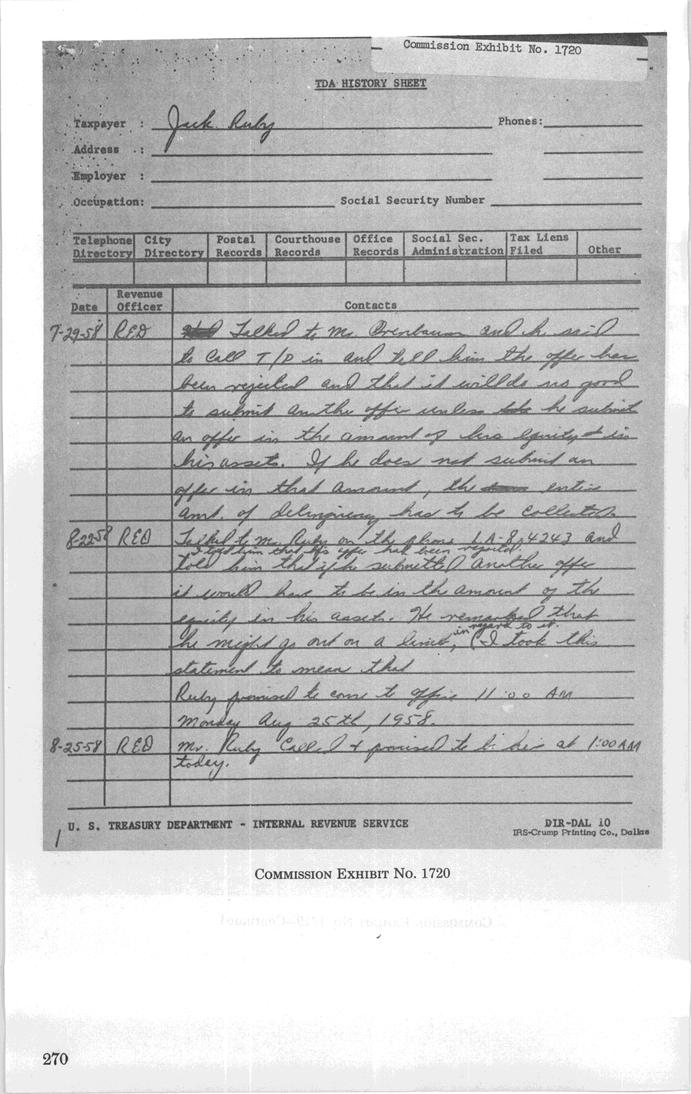 Commission Exhibit No. 1720
TDA HISTORY SHEET
Taxpayer : Jack Ruby Phones:
Address :
Employer :
Occupation: Social Security Number
Telephone Directory City Directory Postal Records Courthouse Records Office Records Social Sec. Administration Tax Liens Filed Other
Date Revenue Officer Contacts
7-29-58 RED Talked to Mr. and he said
to call T/P in and tell him the offer has
been rejected and that it will do no good
to submit another offer unless he submit
an offer in the amount of his equity in
his assets. If he does not submit an
offer in that amount, the entire
amt. of delinquency has to be collected.
8-22-58 RED Talked to Mr. Ruby on the phone LA-8,4243 and
I told him that his offer had been rejected
told him that if he submitted another offer
it would have to be in the amount of the
equity in his assets. He remarked that
in regard to it.
he might go out on a limb, (I took this
statement to mean that
Ruby promised to come to office 11:00 AM
Monday Aug 25th, 1958.
8-25-58 RED Mr. Ruby Called & promised to be here at 1:00 AM
today.
U. S. TREASURY DEPARTMENT - INTERNAL REVENUE SERVICE DIR-DAL 10
IRS-Crump Printing Co., Dallas
1
COMMISSION EXHIBIT No. 1720
270